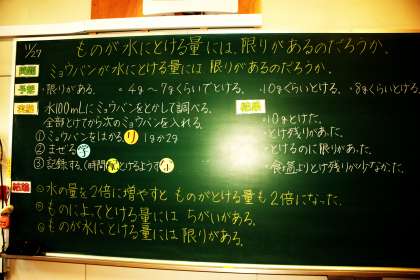 11/27
ものが水にとける量には、限りがあるのだろうか。
問題
ミョウバンが水にとける量には限りがあるのだろうか。
予想
・限りがある。 ・4g~7gくらいでとける。 ・10gくらいとける。 ・8gくらいとける。
実験
水100mLにミョウバンをとかして調べる。
全部とけてから次のミョウバンを入れる。
①ミョウバンをはかる。り 1gか2g
②まぜる
③記録する(時間 とけるようす)
結果
・10gとけた。
・とけ残りがあった。
・とけるのに限りがあった。
・食塩よりとけ残りが少なかった。
結論
水の量を2倍に増やすとものがとける量も2倍になった。
ものによってとける量にはちがいがある。
ものが水にとける量には限りがある。